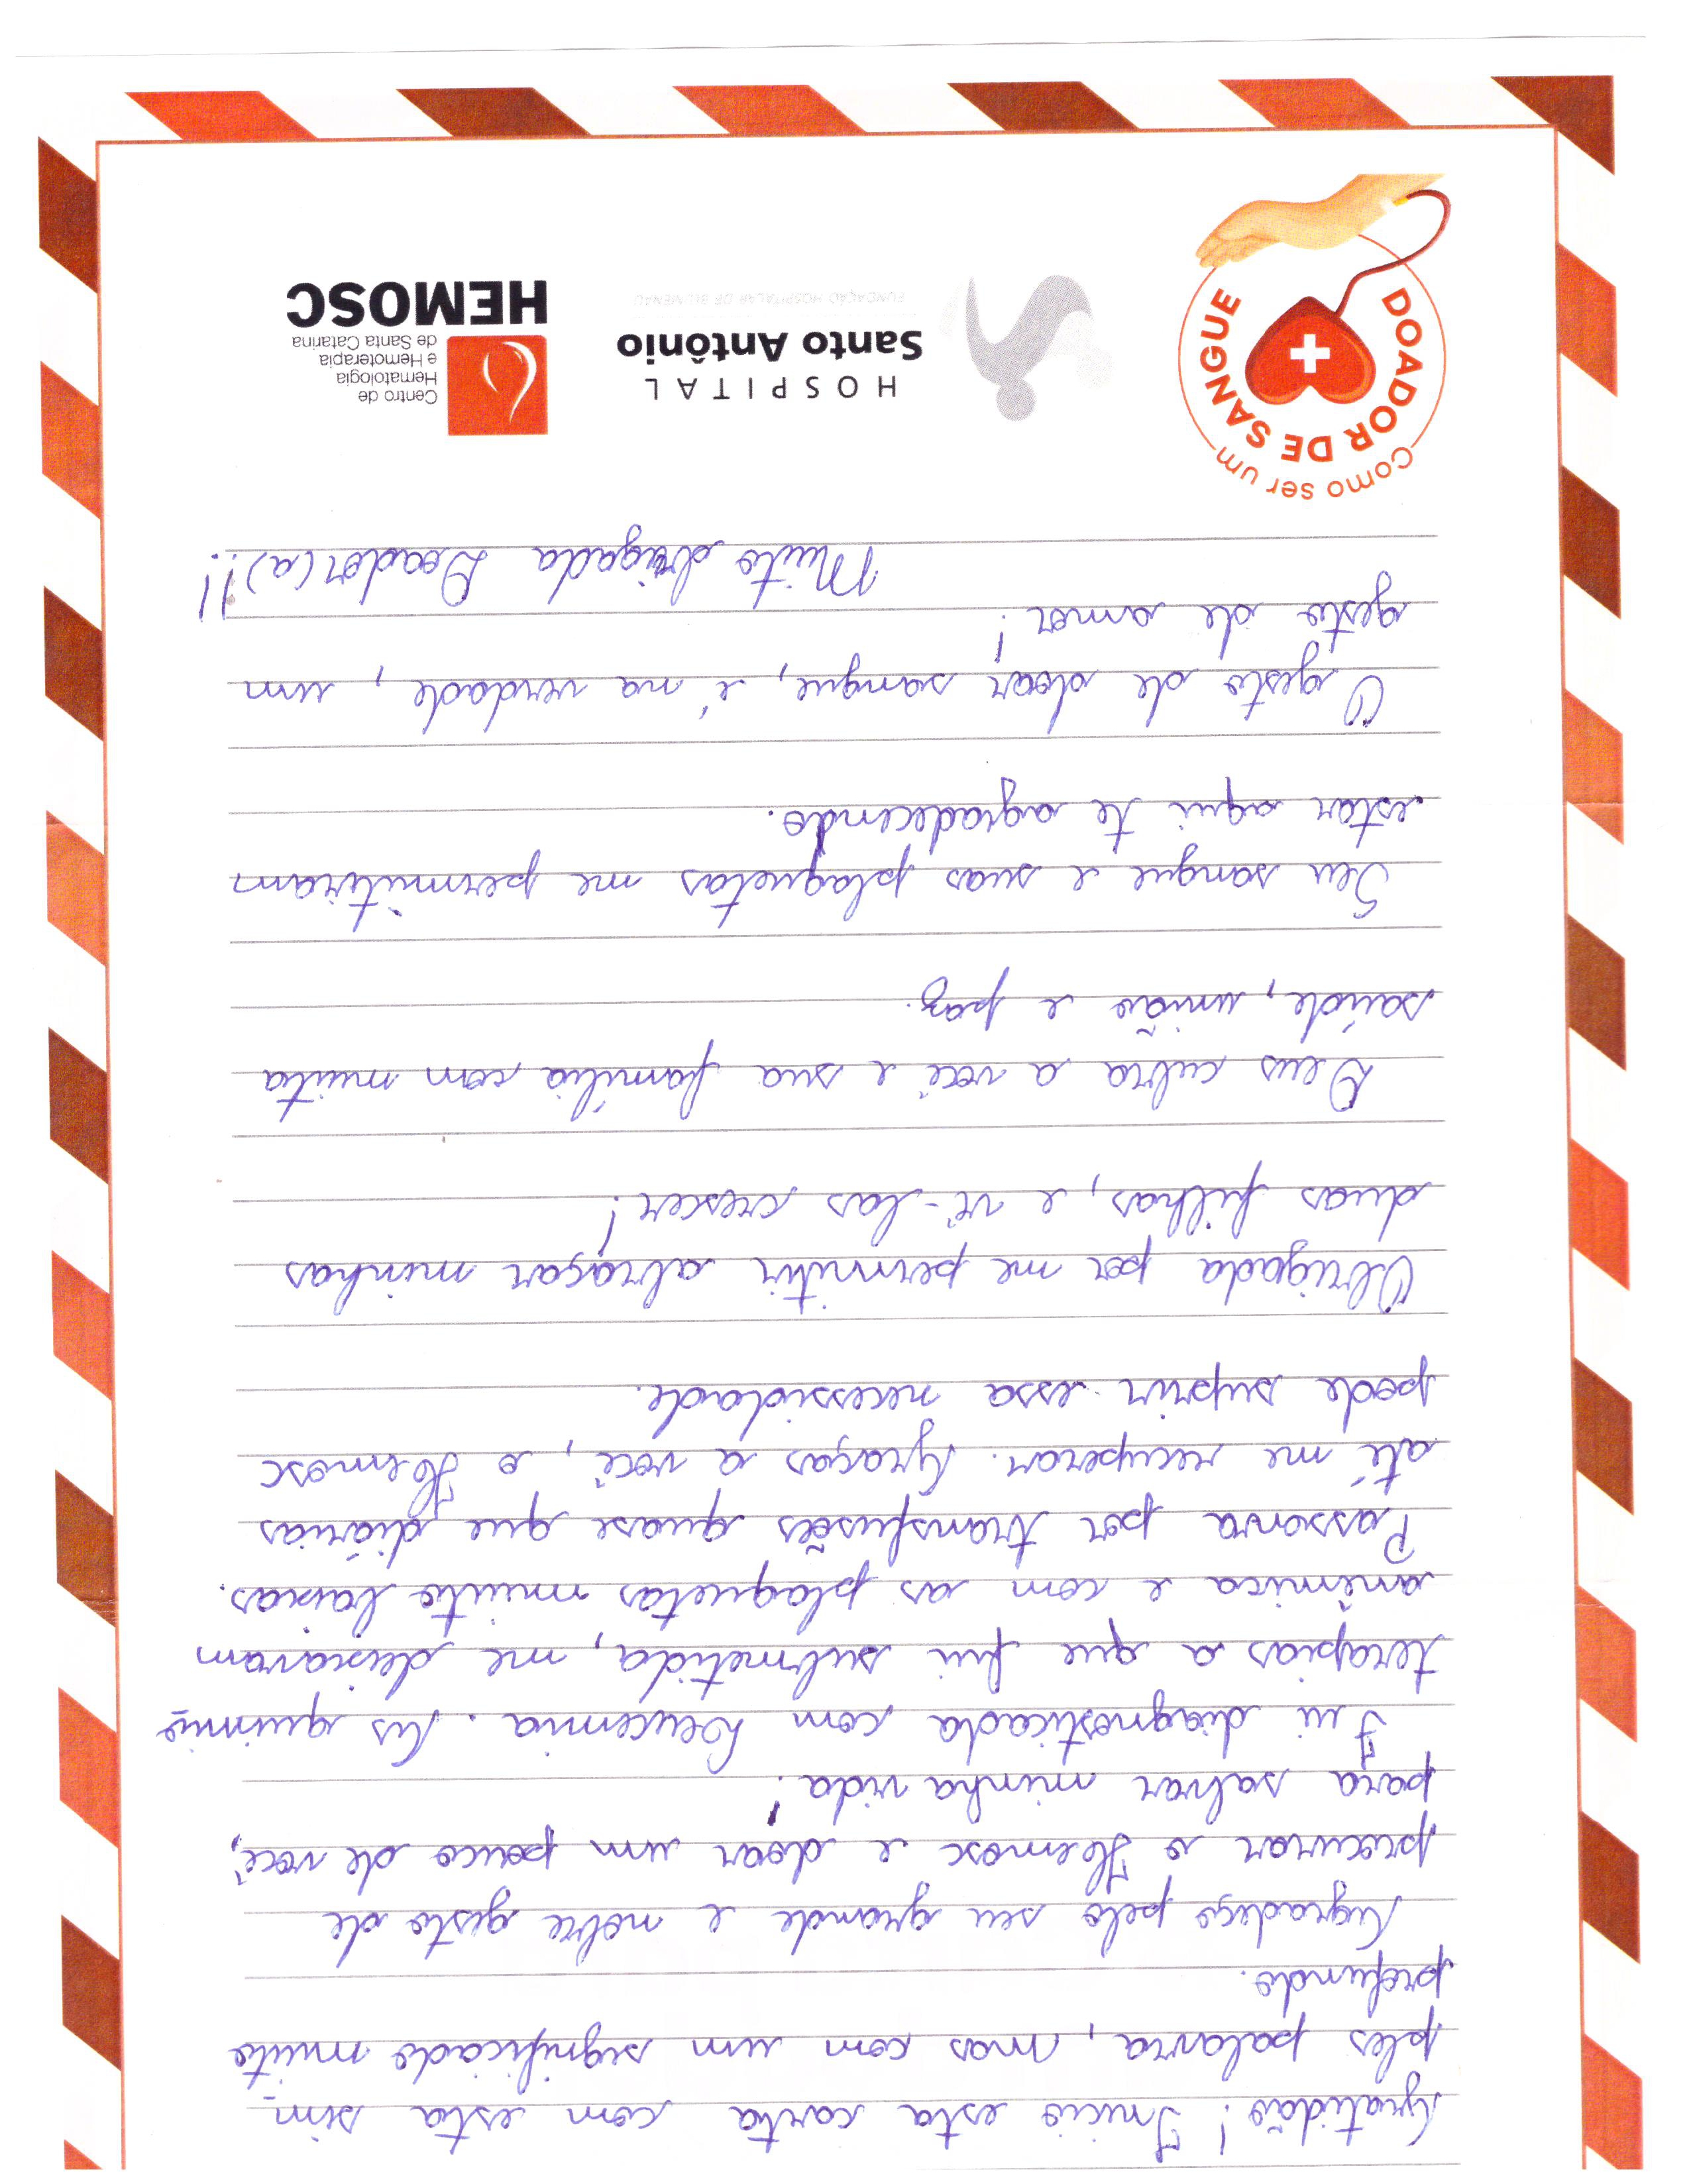 Gratidão! Inicio esta carta com esta sim-
ples palavra, mas com um significado muito
profundo.
Agradeço pelo seu grande e nobre gesto de
procurar o Hemosc e doar um pouco de você,
para salvar minha vida!
Fui diagnosticada com Leucemia. As quimio
terapias a que fui submetida, me deixavam
anêmica e com as plaquetas muito baixas.
Passava por transfusões quase que diárias
até me recuperar. Graças a você, o Hemosc
pode suprir essa necessidade.
Obrigada por me permitir abraçar minhas
duas filhas, e vê-las crescer!
Deus cubra a você e sua família com muita
saúde, união e paz.
Seu sangue e suas plaquetas me permitiram
estar aqui te agradecendo.
O gesto de doar sangue, é na verdade, um
gesto de amor!
Muito obrigada Doador(a)!!
Como ser um
DOADOR DE SANGUE
HOSPITAL
Santo Antônio
FUNDAÇÃO HOSPITALAR DE BLUMENAU
Centro de
Hematologia
e Hemoterapia
de Santa Catarina
HEMOSC